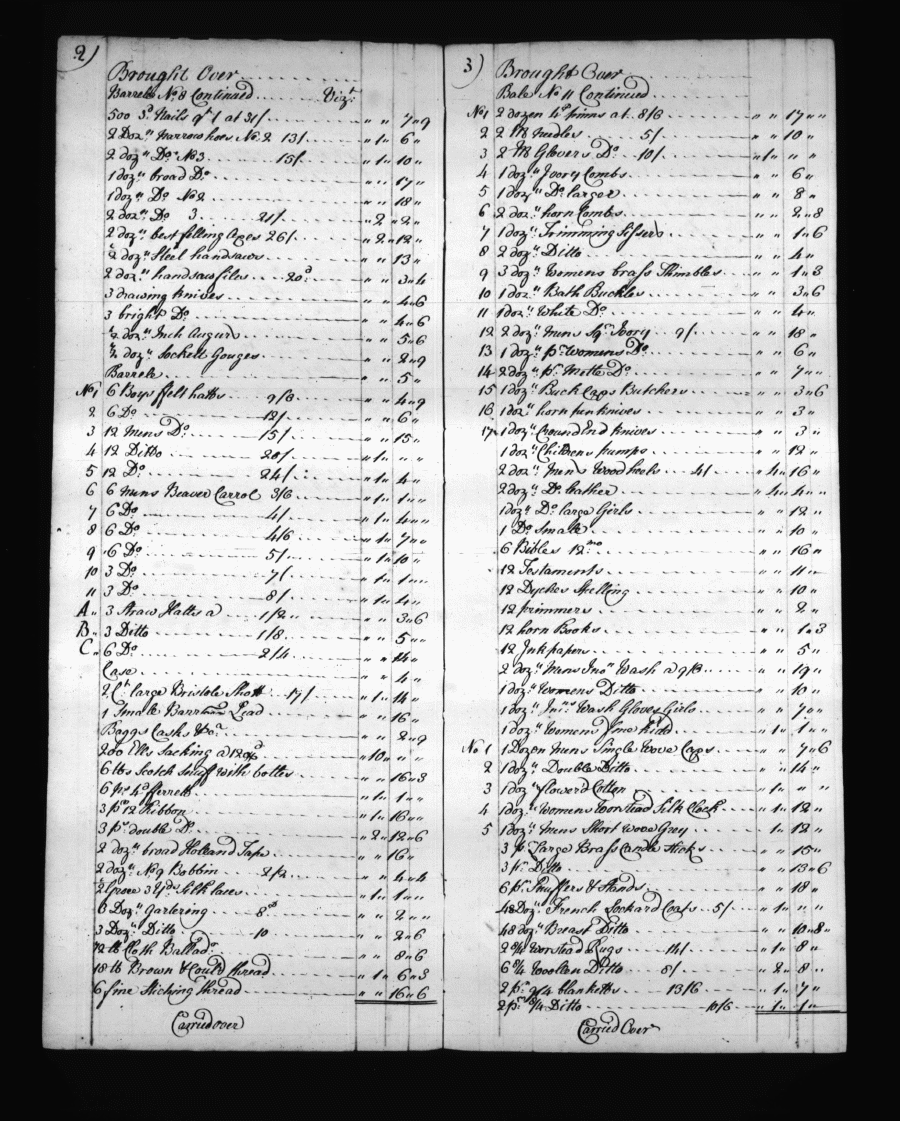 2)
Brought Over
Barrell No 8 Continued Vizt
500 3d Nails qt 1 at 31/ " " 7 " 9
2 Dozn narrow hoes No 2 13/ " 1 " 6 "
2 dozn Do No 3 15/ " 1 " 10 "
1 dozn broad Do " " 17 "
1 dozn Do No 2 " " 18 "
2 dozn Do 3 21/ " 2 " 2 "
2 dozn best felling Axes 26/ " 2 " 12 "
½ dozn Steel handsaws " " 13 "
2 dozn handsaw files 20d " " 3 " 4
3 drawing knives " " 4 " 6
3 bright Do " " 4 " 6
½ dozn Inch Augurs " " 5 " 6
½ dozn Sockett Gouges " " 2 " 9
Barrele " " 5 "
No 1 6 Boys ffelt hatts 9/6 " " 4 " 9
2 6 Do 12/ " " 6 "
3 12 Mens Do 15/ " " 15 "
4 12 Ditto 20/ " 1 " " "
5 12 Do 24/ " 1 " 4 "
6 6 mens Beaver Carrol 3/6 " 1 " 1 "
7 6 Do 4/ " 1 " 4 "
8 6 Do 4/6 " 1 " 7 "
9 6 Do 5/ " 1 " 10 "
10 3 Do 7/ " 1 " 1 "
11 3 Do 8/ " 1 " 4 "
A 3 Straw Hatts a 1/2 " " 3 " 6
B 3 Ditto 1/8 " " 5 "
C 6 Do 2/4 " " 14 "
Case " " 4 "
2 Ct large Bristole Shott 17/ " 1 " 14 "
1 Smale Barr Lead " " 16 "
Baggs Casks &ca " " 2 " 9
200 Ells Sacking a 12d " 10 " " "
6 lbs Scotch Snuff with bottes " " 16 " 3
6 ps 4d fferrett " 1 " 1 "
3 ps 12 Ribbon " 1 " 16 "
3 ps double Do " 2 " 12 " 6
2 dozn broad Holland Tape " " 16 "
2 dozn No 9 Bobbin 2/2 " " 4 " 4
3 yds Silk laces " 1 " 1 "
3 Dozn Gartering 8d " " 2 "
3 Dozn Ditto 10 " " 2 " 6
12 lb Cloth " " 8 " 6
18 lb Brown & Could thread " 1 " 6 " 3
6 fine Stiching thread " " 16 " 6
Carried over
3)
Brought Over
Bale No 11 Continued
No 1 2 dozen lb pinns at 8/6 " " 17 "
2 2 M Needles 5/ " " 10 "
3 2 M Glovers Do 10/ " 1 " " "
4 1 dozn Ivory Combs " " 6 "
5 1 dozn Do larger " " 8 "
6 2 dozn horn Combs " " 2 " 8
7 1 dozn Trimming Sissers " " 1 " 6
8 2 dozn Ditto " " 4 "
9 3 dozn Womens brass Thimbles " " 1 " 3
10 1 dozn Bath Buckles " " 3 " 6
11 1 dozn White Do " " 4 "
12 2 dozn mens Sqr Ivory 9/ " " 18 "
13 1 dozn pr Womens Do " " 6 "
14 2 dozn pr Mettle Do " " 7 "
15 1 dozn Buck Caps Butchers " " 3 " 6
16 1 dozn horn pen knives " " 3 "
17 1 dozn Cround End knives " " 3 "
1 dozn Childrens pumps " " 12 "
2 dozn Mens Wood heels 4/ " 4 " 16 "
2 dozn Do leather " 4 " 4 "
1 dozn Do large Girls " " 12 "
1 Do Smale " " 10 "
6 Bibles 12mo " " 16 "
12 Testaments " " 11 "
12 Dyches Spelling " " 10 "
12 primmers " " 2 "
12 horn Books " " 1 " 3
12 Inkpapers " " 5 "
2 dozn Mens Wash a 9/6 " " 19 "
1 dozn Womens Ditto " " 10 "
1 dozn Wash Gloves Girls " " 7 "
1 dozn Womens fine kidd " 1 " 1 "
No 1 1 Dozen mens Single Wove Caps " " 7 " 6
2 1 dozn Double Ditto " " 14 "
3 1 dozn flowerd Cotten " 1 " " "
4 1 dozn Womens Worstead Silk Clock " 1 " 12 "
5 1 dozn mens Short wove Grey " 1 " 12 "
3 pr Large Brass Candle Sticks " " 15 "
3 pr Ditto " " 13 " 6
6 pr Snuffers & Stands " " 18 "
48 Dozn French Coats 5/ " 1 " " "
48 dozn Breast Ditto " " 10 " 8
2 9/4 Worstead Rugs 14/ " 1 " 8 "
6 6/4 Woollen Ditto 8/ " 2 " 8 "
2 ps 9/4 blanketts 13/6 " 1 " 7 "
2 pr 8/4 Ditto 10/6 " 1 " 1 "
Carried Over